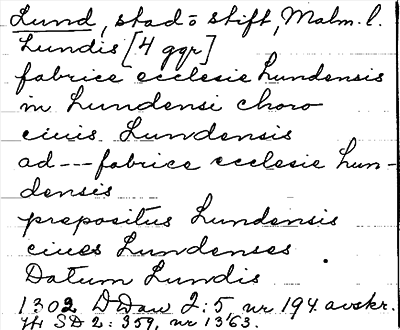 Lund, stad o stift, Malm. l.
Lundis [4 ggr]
fabrice ecclesie Lundensis
in Lundensi choro
ciuis Lundensis
ad --- fabrice ecclesie Lun-
densis
prepositus Lundensis
ciues Lundenses
Datum Lundis
1302 DDan 2:5 nr 194. avskr.
Jfr SD 2: 359, nr 1363.